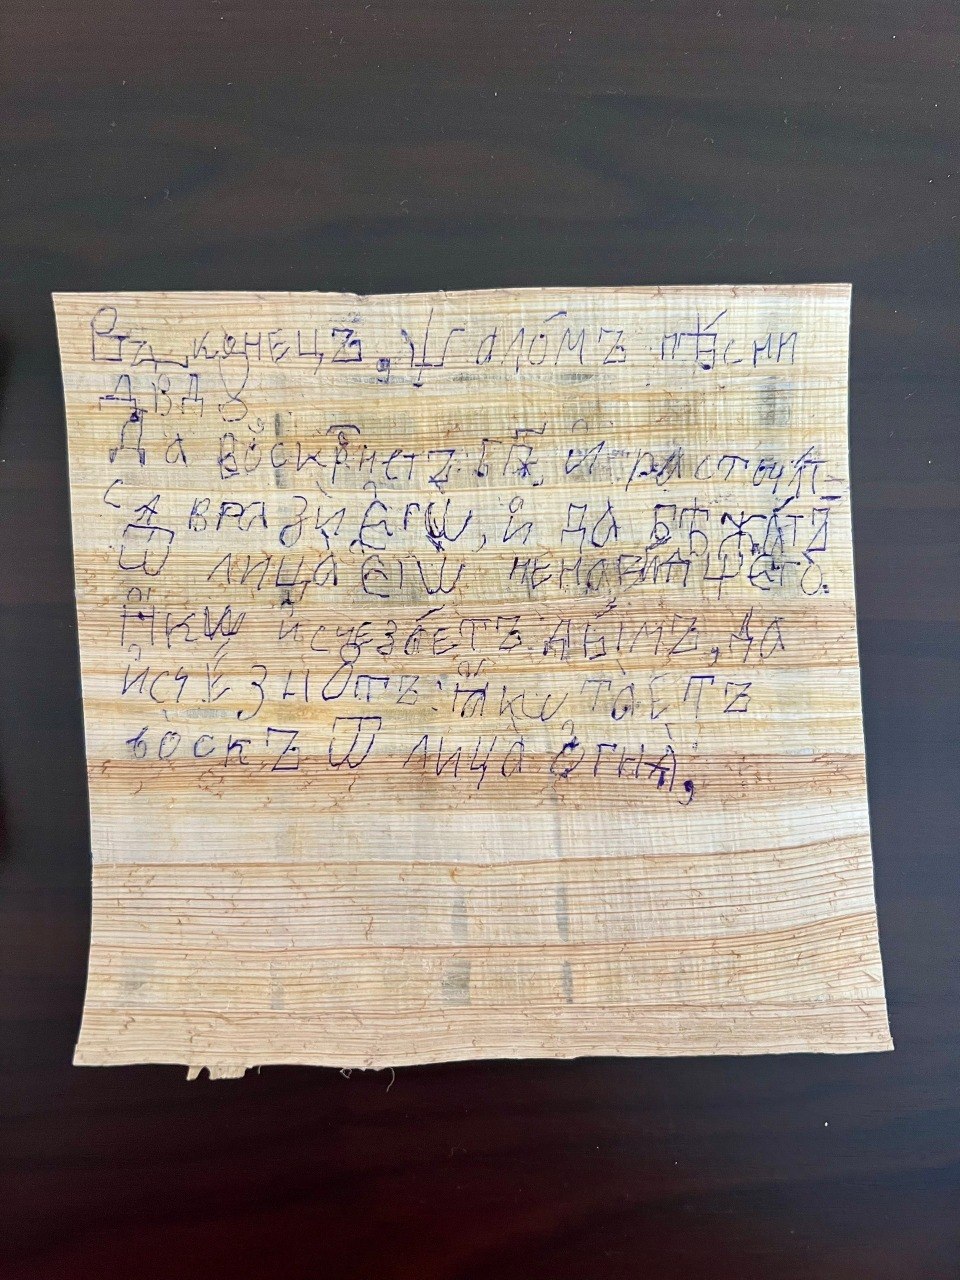 Въ конецъ, ѱаломъ пѣсни
двд҃ꙋ
Да воскр҃нетъ бг҃ъ, и расточат-
сѧ врази єгѡ, и да бѣжатъ
ѿ лица єгѡ ненавидѧщ єго.
Ꙗкѡ исчезаетъ дымъ, да
исчезнꙋтъ: ꙗкѡ таетъ
воскъ ѿ лица огнѧ,